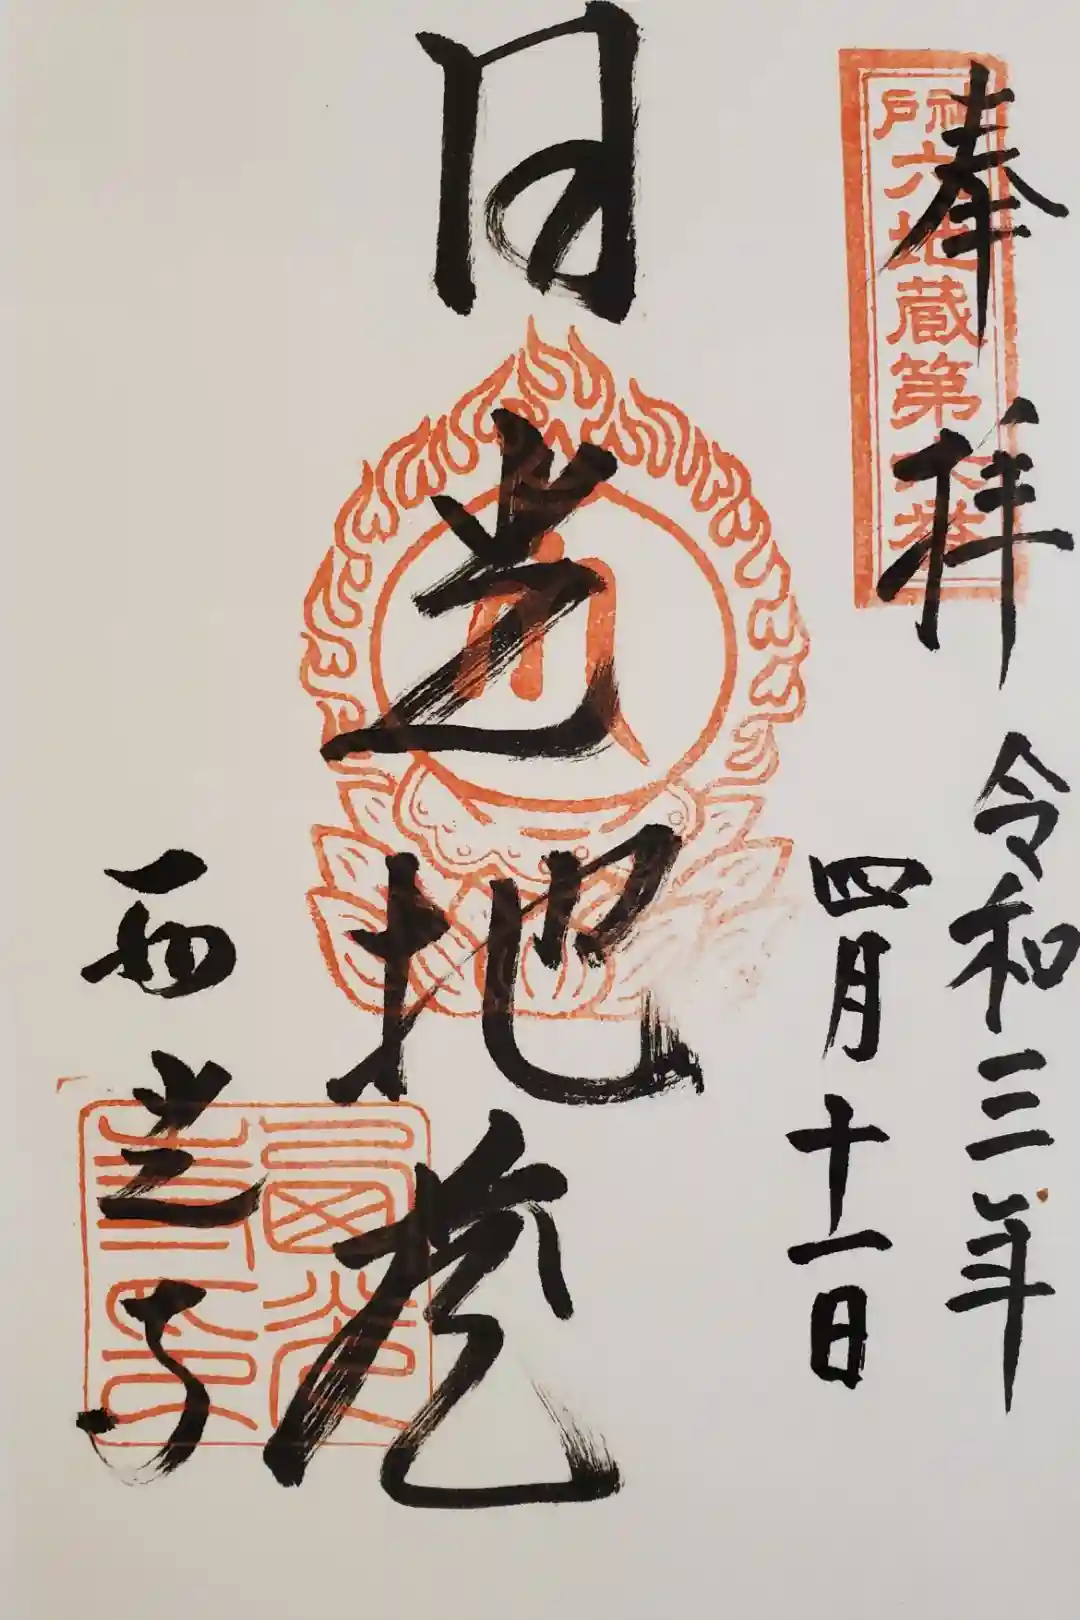 奉拝
六地蔵第番
令和三年
四月十一日
日光地蔵
西光寺
西光
寺印